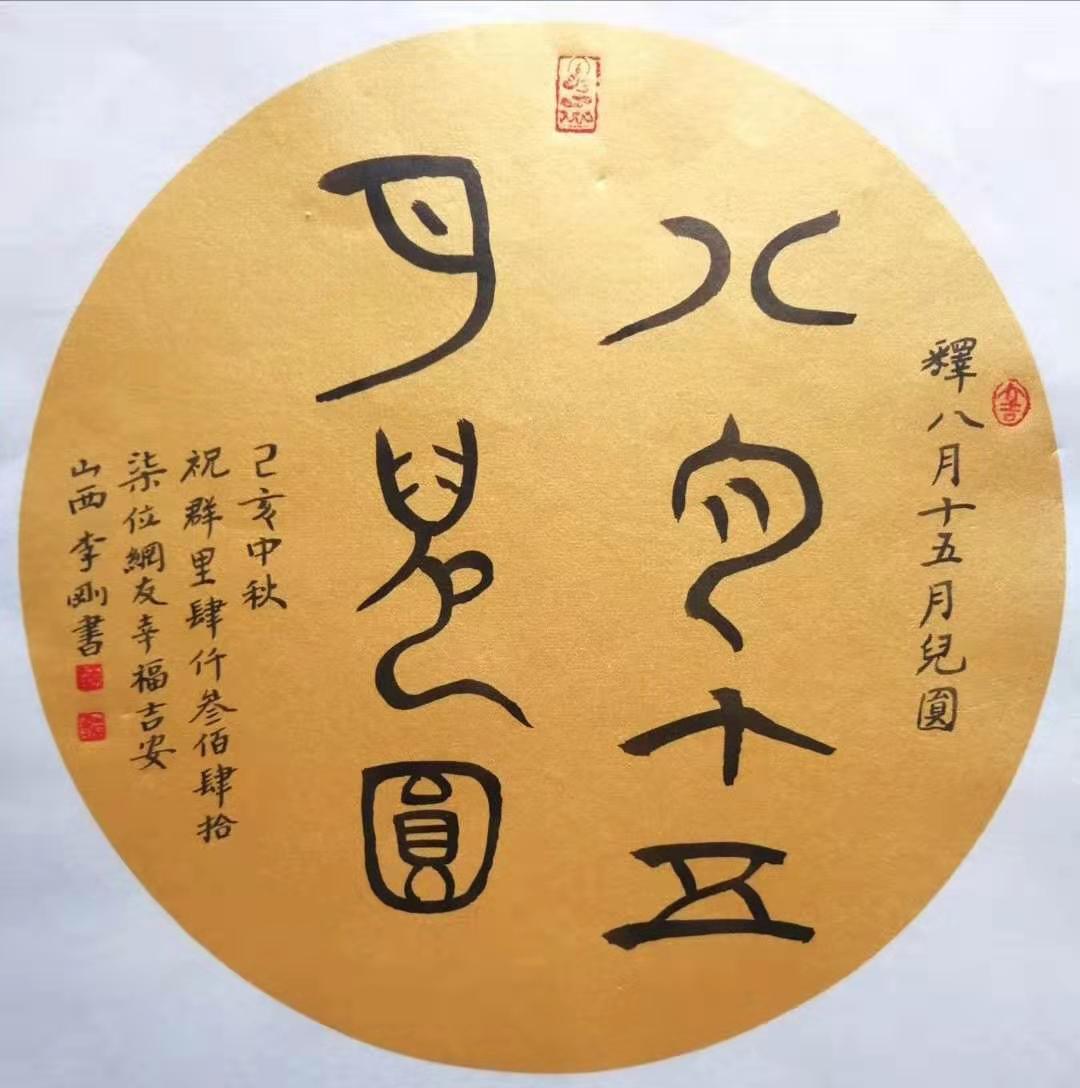 釋八月十五月兒圓
八月十五
月兒圓
己亥中秋
祝群里肆仟叁佰肆拾
柒位網友幸福吉安
山西李剛書